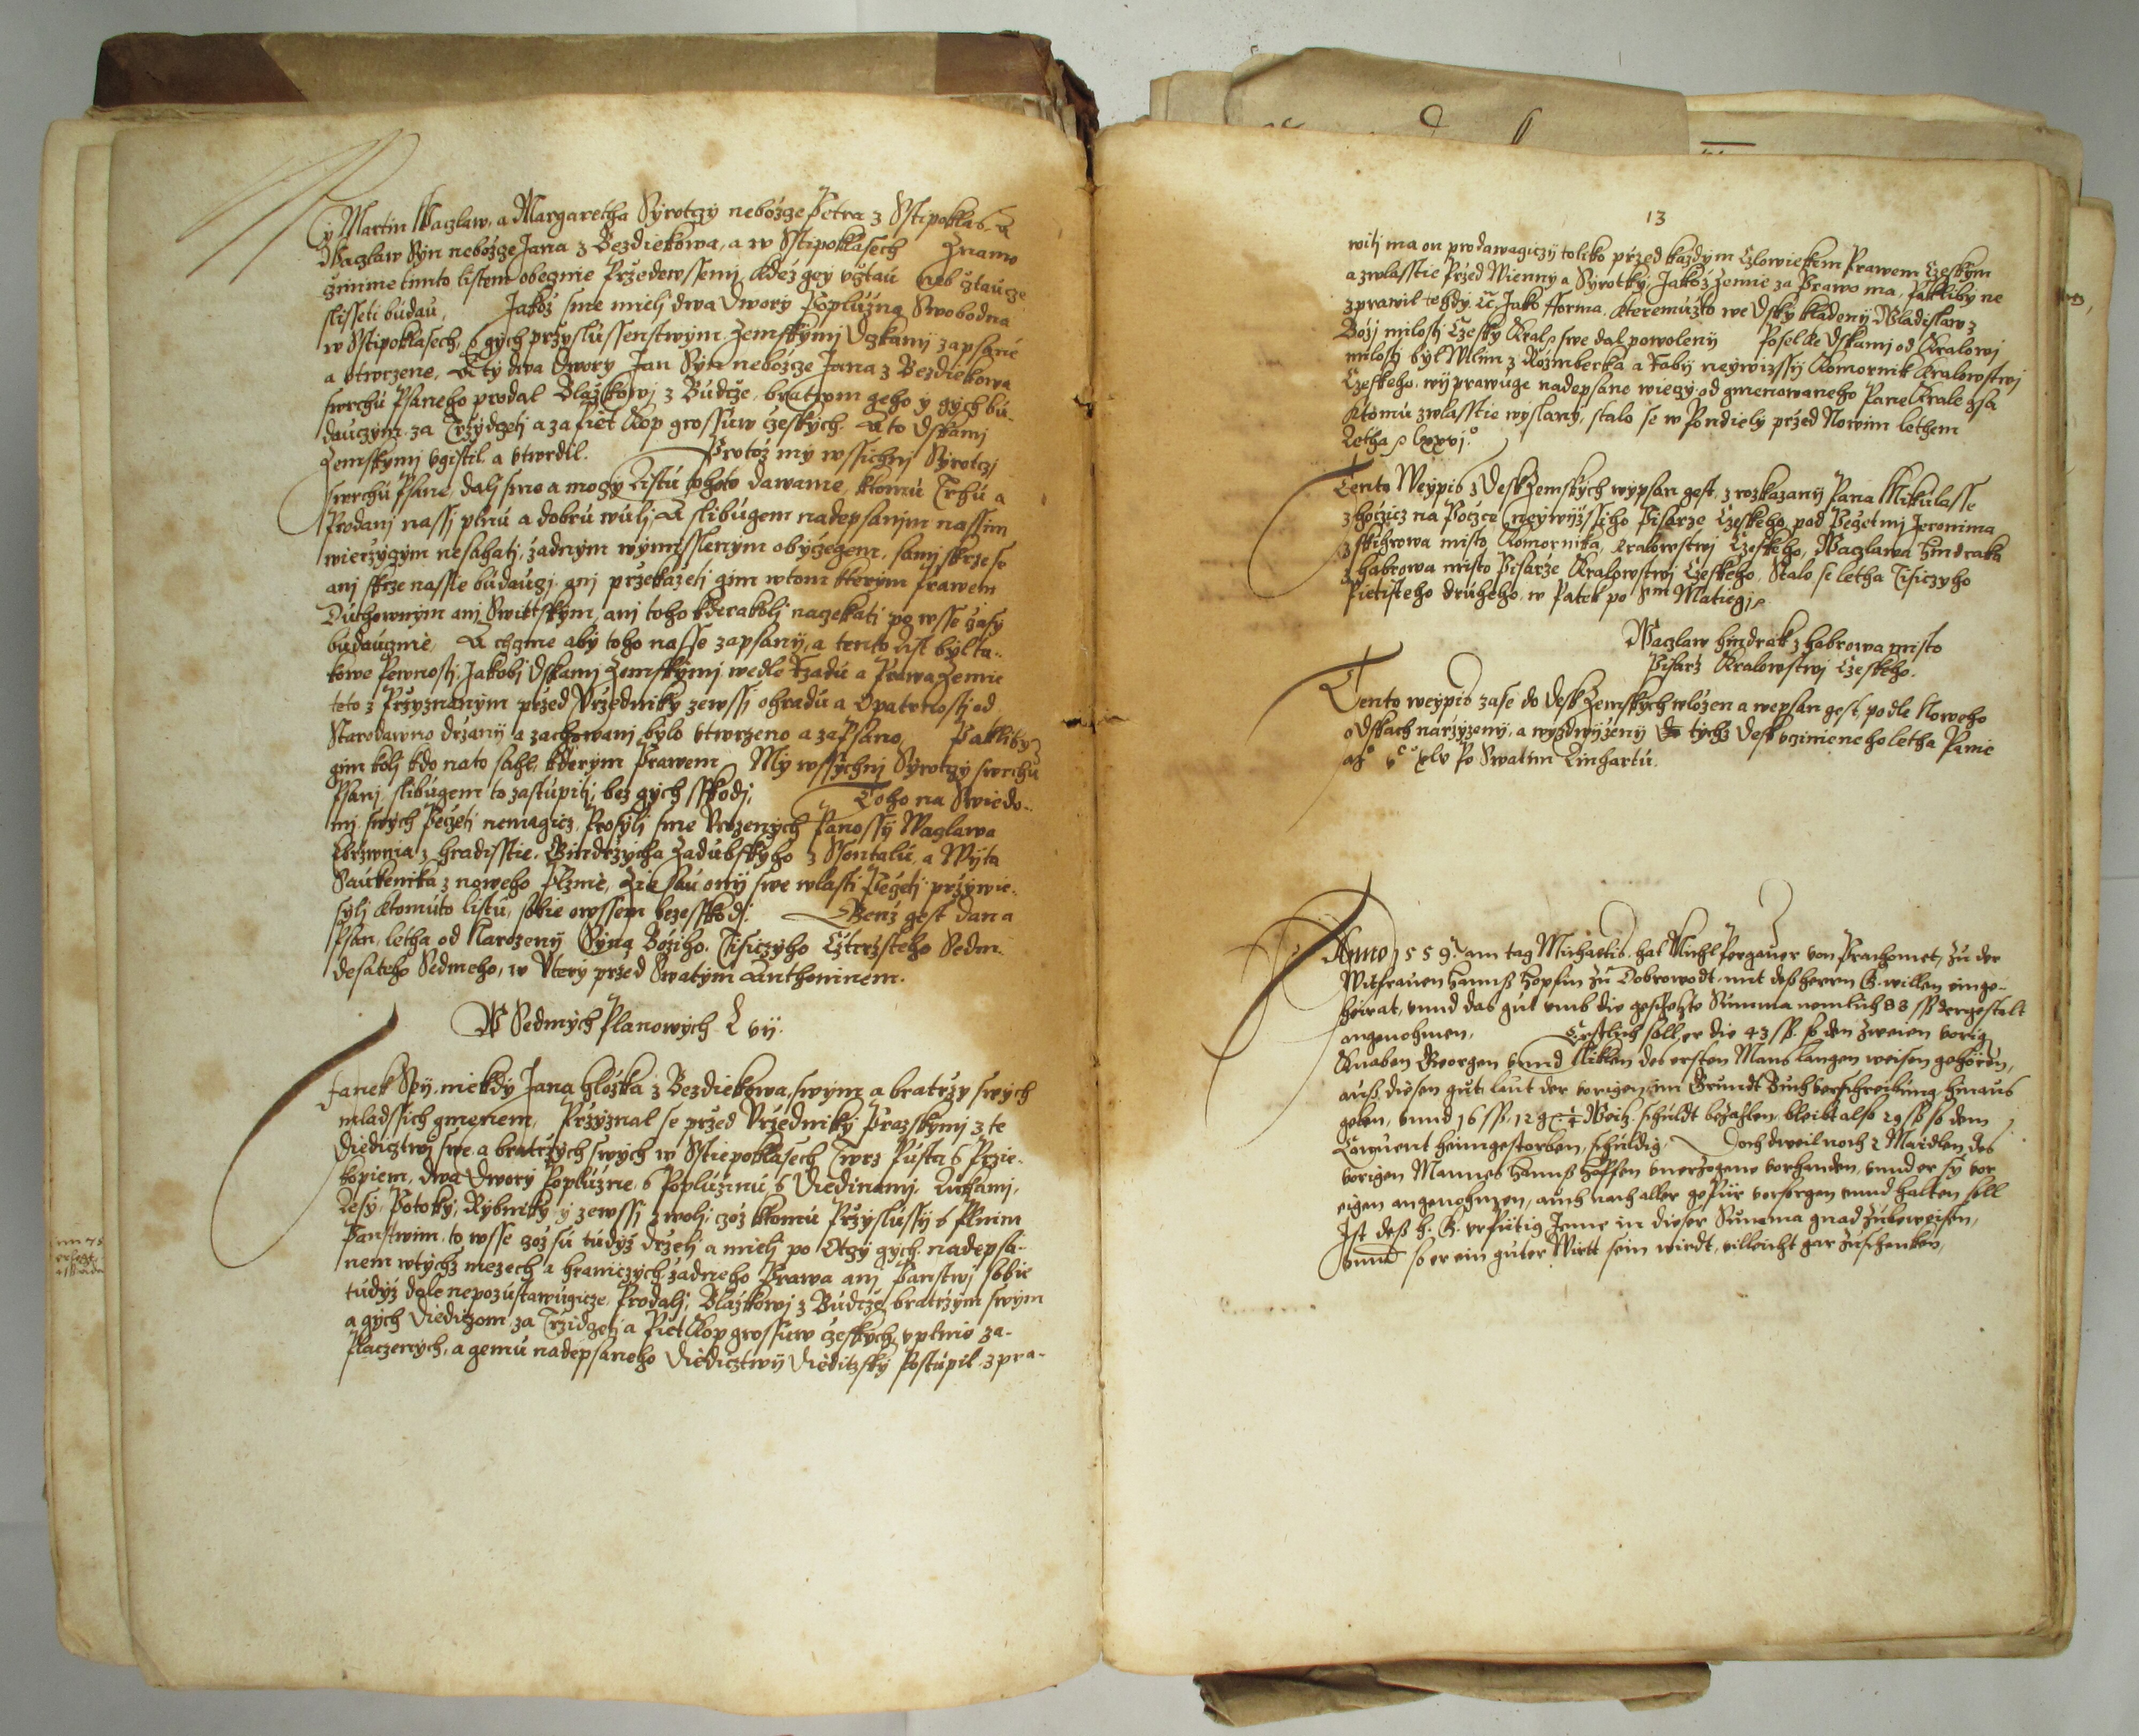 My Martin Waczlaw, a Margaretha Syrotczy nebozcze Petra z Sstipoklas A
Waczlaw Syn nebozcze Jana z Bezdiekowa, a w Sstipoklasech Znamo
czinime timto listem obecznie Przedewssemi, kdez gey vcztau neb cztaucze
slisseti budau, Jakoz sme mieli dwa Dwory Popluzna Swobodna
w Sstipoklasech, s gych przyslussenstwym Zemskymi Dczkami zapsane
a vtwrzene, A ty dwa Dwory Jan Syn nebozcze Jana z Bezdiekowa
swrchu Psaneho prodal Blazkowi z Budcze, bratrom geho y gych bu-
dauczym za Trzydczeti a za Piet kop grossuw czeskych. A to Dskami
Zemskymi vgistil a vtwrdil. Protoz my wssichni Syrotczi
swrchu Psane, dali smo a moczy Listu tohoto dawame, ktomu Trhu a
Prodani nassi plnu a dobru wuli A slibugem nadepsanim nassim
wierzyczym nesahati, zadnym wymisslenym obyczegem, sami skrze se
ani skrze nasse budauczi, gni przekazeti gim wtom kterym Prawem
Duchownym ani Swittskym, ani toho kderakoli narzekati po wsse czasy
budaucznie, A chczme aby toho nasse zapsany, a tento List byl ta-
kowe Pewnosti, Jakobi Dskami Zemskymi wedle Rzadu a Prawa Zemie
teto z Przyznanym przed Vrzedniky zewssi ohradu a Opatrnosti od
Starodawno drzany a zachowani bylo vtwrzeno a zaPsano, Pakliby
gim koli kdo nato sahl, kderym Prawem My wssychni Syrotczy swrchu
Psani slibugem to zastupiti, bez gych sskodi, Toho na Swiedo-
mi, swych Peczeti nemagicz, Prosyli sme Vrozenych Panossy Waczlawa
Chrzwnia z Hradisstie, Gindrzycha Zadubskyho z Ssontalu, a Wyta
Saukenika z noweho Plznie, Zie sau ony swe wlasti Peczeti przywie-
syli ktomuto listu, sobie owssem bezesskodi. Genz gest dan a
Psan, letha od Narozeny Syna Boziho, Tisiczyho Cztwrzsteho Sedm-
desateho Sedmeho, w Vtery przed Swatym Anthoninem.
W Sedmych Planowych L vij.
Janek Syn niekdy Jana Hlozka z Bezdiekowa, swym a bratrzy swych
mladssich gmenem, Przyznal se przed Vrzedniky Prazskymi z te
Diedicztwi swe a bratrzych swych w Sstiepoklasech Twrz Pusta s Przie-
kopiem, dwa Dwory Popluzne, s Popluzinu, s Diedinami, Lukami,
Lesy, Potoky, Rybniky, y zewssi zwoli, czoz ktomu Przyslussy s Plnim
Panstwim, to wsse czoz su tudyz drzeli a mieli po Otczy gych nadepsa-
nem wtychz mezech a hraniczych zadneho Prawa ani Panstwi sobie
tudyz dale nepozustawugicze, Prodali, Blazkowi z Budcze, bratrzym swym
a gych Diediczom, za Trzidczeti a Piet kop grossuw czeskych, vplnie za-
placzenych, a gemu nadepsaneho Diedicztwy Diediczsky Postupil. zpra-
13
witi ma on prodawagiczy toliko przed kazdym Czlowiekem Prawem Czeskym
a zwlasstie Przed Wienny a Syrotky, Jakoz Zemie za Prawo ma, Pakliby ne
zprawil tehdy etc Jako fforma, kteremuzto we Dsky kladeny Wladislaw z
Bozj milosti Czesky Kral swe dal powoleny Posel ke Dskami od Kralowi
milosti byl Wilim z Rozmberka a Raby neywizssy Komornik Kralowstwi
Czeskeho, wyprawuge nadepsane wieczy od gmenowaneho Pane Krale gsa
ktomu zwlasstie wyslany, stalo se w Pondiely przed Nowim lethem
Letha lxxvj.o
Tento Weypis z Desk Zemskych wypsan gest, z rozkazany Pana Mikulasse
z Horzicz na Boczce neywyzssiho Pisarze Czeskeho, pod Peczetmi Jeronima
z Skuhrowa misto Komornika, Kralowstwi Czeskeho, Waczlawa Hindraka
z Habrowa misto Pisarze Kralowstwi Czeskeho, Stalo se letha Tisiczyho
Pietisteho druheho, w Patek po Smt Matiegi.
Waczlaw Hindrak z Habrowa misto
Pisarz Kralowstwi Czeskeho.
Tento weypis zase do Desk Zemskych wlozen a wepsan gest, podle Noweho
o Dskach narzyzeny, a wyzdwyzeny tychz Desk vczinieneho letha Panie
xlv Po Swatim Linhartu.
Anno 1559. am tag Michaelis hat Michl Pergauer von Prachomet, zu der
Witfrauen Hannß Hopfin zu Dobrowodt, mit deß herrn G. willen einge-
heirat, vnnd das gut vmb die geschetzte Summa nemlich 88 ß dergestalt
angenohmen, Erstlich soll er die 43 ß. so den zweien vorig
Knaben Georgen vnnd Niklen des ersten Mans langen weisen gehören,
auß diesen gut, laut der vorigen im Grundt Buch verschreibung hinaus
geben, vnnd 16 ß. 12 g ¼ Weiß. schuldt bezahlen bleibt also 29 ß so dem
Conuent heimgestorben, schuldig. Doch dweil noch 2 Maidlen des
vorigen Mannes Hannß Hopffen vnerzogene vorhanden, vnnd er sy vor
eigen angenohmen, auch nach aller gebür versorgen vnnd halten soll
Ist deß h. G. erbütig Jnne in dieser Summa gnad zubeweisen,
vnnd so er ein guter Wirtt sein wirdt, villeicht gar zuschenken,